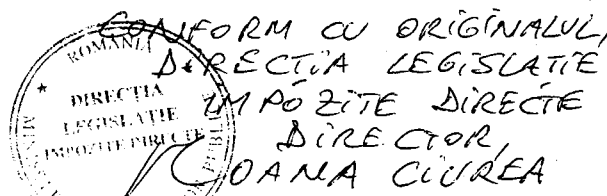 CONFORM CU ORIGINALUL,
DIRECȚIA LEGISLAȚIE
IMPOZITE DIRECTE
DIRECTOR,
IOANA CIUREA
ROMANIA
DIRECȚIA
LEGISLAȚIE
IMPOZITE DIRECTE